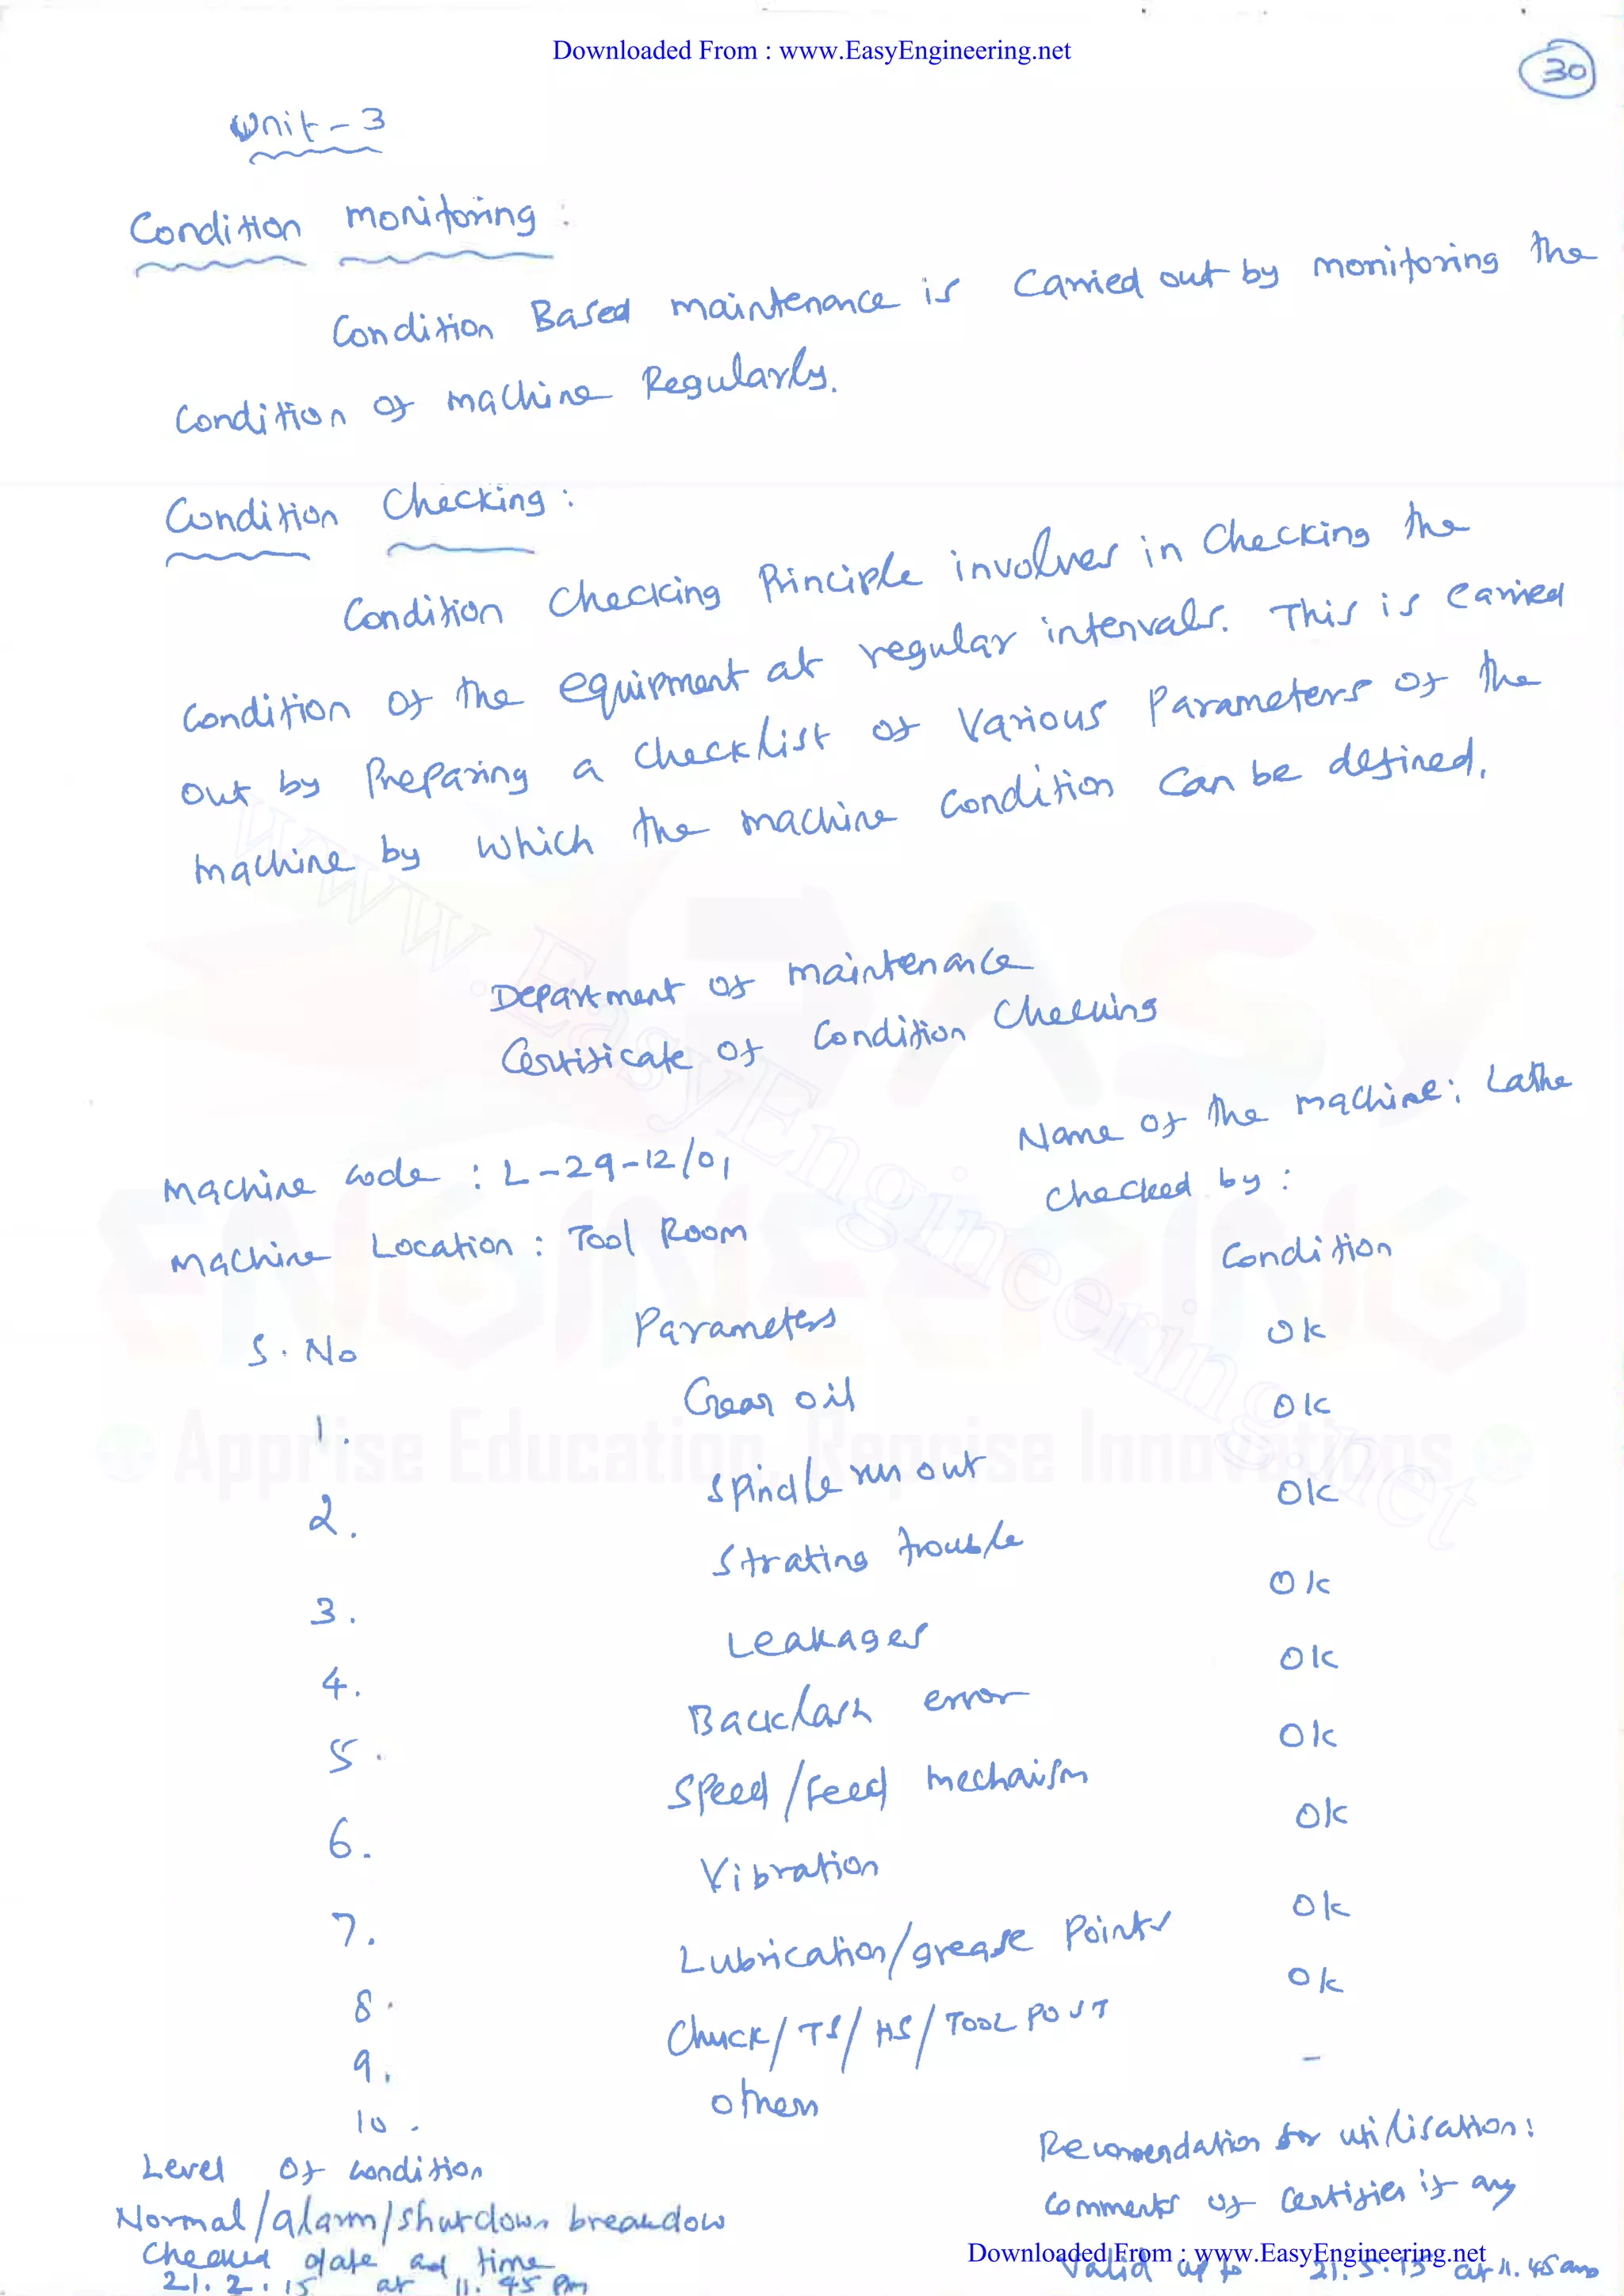 Downloaded From : www.EasyEngineering.net
30
Unit - 3
Condition monitoring :
Condition Based maintenance is Carried out by monitoring the
Condition of machine Regularly.
Condition Checking :
Condition Checking Principle involves in Checking the
Condition of the equipment at regular intervals. This is Carried
out by Preparing a Checklist of Various Parameters of the
machine by which the machine Condition Can be defined.
Department of maintenance
Certificate of Condition Checking
Machine code : L-29-12/01 Name of the machine : Lathe
Machine Location : Tool Room Checked by :
S. No Parameters Condition
1. Gear oil Ok
2. Spindle run out Ok
3. Strating trouble Ok
4. Leakages Ok
5. Backlash error Ok
6. Speed / Feed mechaism Ok
7. Vibration Ok
8. Lubrication/grease Points Ok
9. Chuck/ TS/ HS/ TOOL POST Ok
10. others -
Level of condition Recomendation for utilisation :
Normal/alarm/shutdown breakdow Comments of Certifier if any
Checked date and time Valid up to 21.5.15 at 11.45 am
21.2.15 at 11.45 Pm
Downloaded From : www.EasyEngineering.net
www.EasyEngineering.net
EASY
ENGINEERING
Apprise Education, Reprise Innovations